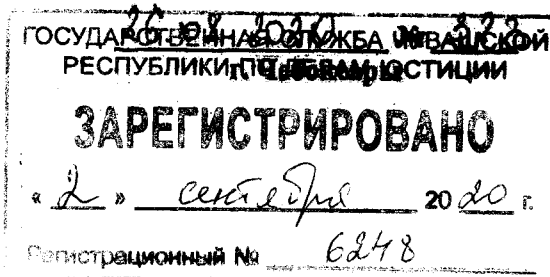 26.08.2020 №
ГОСУДАРСТВЕННАЯ СЛУЖБА ЧУВАШСКОЙ
г. Чебоксары
РЕСПУБЛИКИ ПО ДЕЛАМ ЮСТИЦИИ
ЗАРЕГИСТРИРОВАНО
« 2 » сентября 2020 г.
Регистрационный № 6248